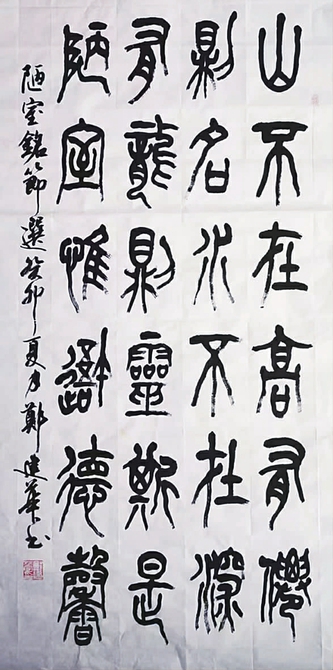 山不在高有僊
則名水不在深
有龍則靈斯是
陋室惟吾德馨
陋室銘節選癸卯夏月鄭建華书